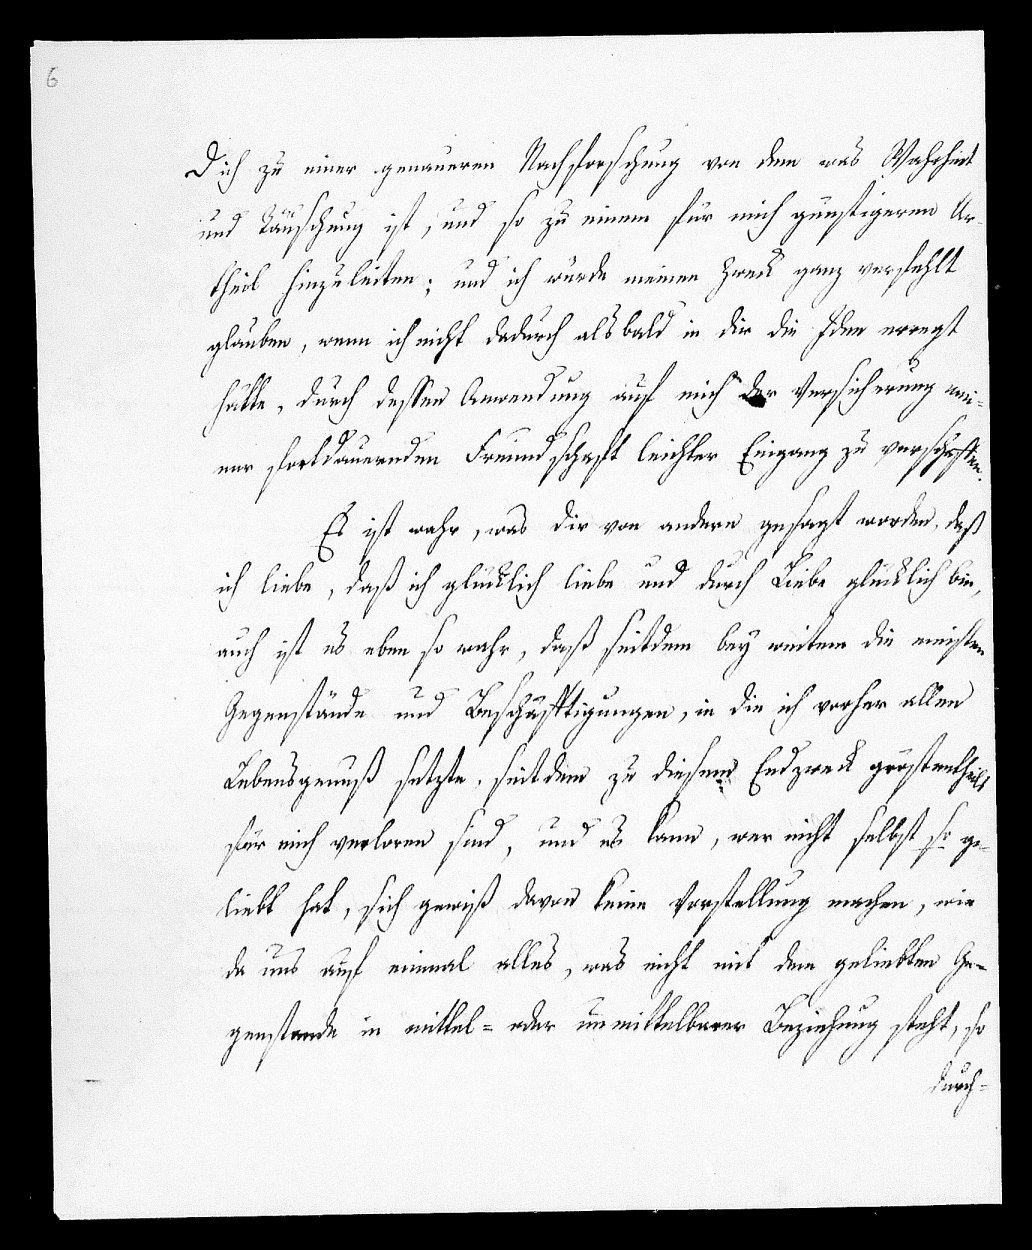 6
Dich zu einer genaueren Nachforschung von dem was Wahrheit
und Täuschung ist, und so zu einem für mich günstigeren Ur-
theil hinzuleiten; und ich würde meinen Zweck ganz verfehlt
glauben, wenn ich nicht dadurch alsbald in dir die Idee erregt
hätte, durch dessen Anwendung auf mich der Versicherung mei-
ner fortdauernden Freundschaft leichter Eingang zu verschaffen.
Es ist wahr, was dir von andern gesagt worden, daß
ich liebe, daß ich glücklich liebe und durch Liebe glücklich bin,
auch ist es eben so wahr, daß seitdem bey weitem die meisten
Gegenstände und Beschäfftigungen, in die ich vorher allen
Lebensgenuß setzte, seitdem zu diesem Endzweck gröstentheils
für mich verloren sind, und es kann, wer nicht selbst so ge-
liebt hat, sich gewiß davon keine Vorstellung machen, wie
da uns auf einmal alles, was nicht mit dem geliebten Ge-
genstande in mittel- oder unmittelbarer Beziehung steht, so
durch-